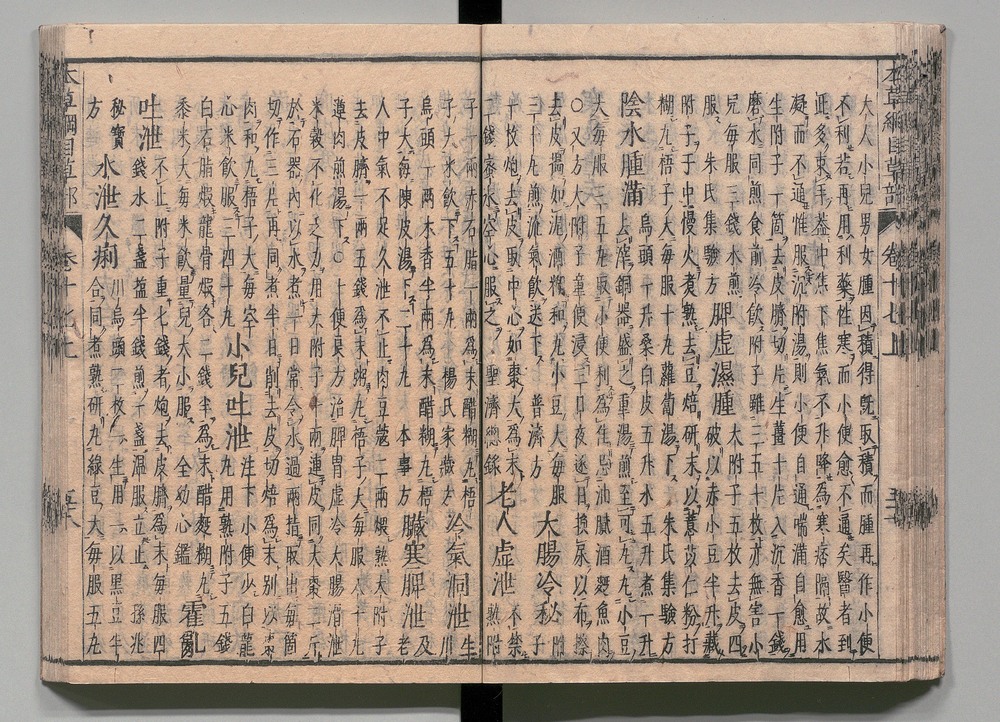 大人小兒男女腫因積得既取積而腫再作小便
不利若再用利藥性寒而小便愈不通矣醫者到
此多束手蓋中焦下焦氣不升降為寒痞隔故水
凝而不通惟服沉附湯則小便自通喘滿自愈用
生附子一箇去皮臍切片生薑十片入沉香一錢
磨水同煎食前冷飲附子雖三五十枚亦無害小
兒每服三錢水煎 朱氏集驗方 脾虛濕腫 大附子五枚去皮四
破以赤小豆半升藏
附子于中慢火煮熟去豆焙研末以薏苡仁粉打
糊丸梧子大每服十丸蘿蔔湯下 朱氏集驗方
陰水腫滿 烏頭一升桑白皮五升水五升煮一升
去滓銅器盛之重湯煎至可丸丸小豆
大每服三五丸取小便利為佳忌油膩酒麪魚肉
○又方大附子童便浸三日夜逐日換尿以布擦
去皮搗如泥酒糊和丸小豆大每服
三十丸煎流氣飲送下 普濟方 大腸冷秘 附子
一枚炮去皮取中心如棗大為末
二錢蜜水空心服之 聖濟總錄 老人虛泄 不禁熟附
子一兩赤石脂一兩為末醋糊丸梧
子大米飲下五十丸 楊氏家藏方 冷氣洞泄 生川
烏頭一兩木香半兩為末醋糊丸梧
子大每陳皮湯下二十丸 本事方 臟寒脾泄 及老
人中氣不足久泄不止肉豆蔲二兩煨熟大附子
去皮臍一兩五錢為末粥丸梧子大每服八十丸
蓮肉煎湯下 ○十便良方治脾胃虛冷大腸滑泄
米穀不化乏力用大附子十兩連皮同大棗二升
於石器內以水煮一日常令水過兩指取出每箇
切作三片再同煮半日削去皮切焙為末別以棗
肉和丸梧子大每空心米飲服三四十丸 小兒吐泄 注下小便少白龍
丸用熟附子五錢
白石脂煅龍骨煅各二錢半為末醋麪糊丸
黍米大每米飲量兒大小服 全幼心鑑 霍亂
吐泄 不止附子重七錢者炮去皮臍為末每服四
錢水二盞鹽半錢煎一盞溫服立止 孫兆
秘寶方 水泄久痢 川烏頭二枚一生用一以黑豆半
合同煮熟研丸綠豆大每服五丸
本草綱目草部 卷十七上
本草綱目草部 卷十七上